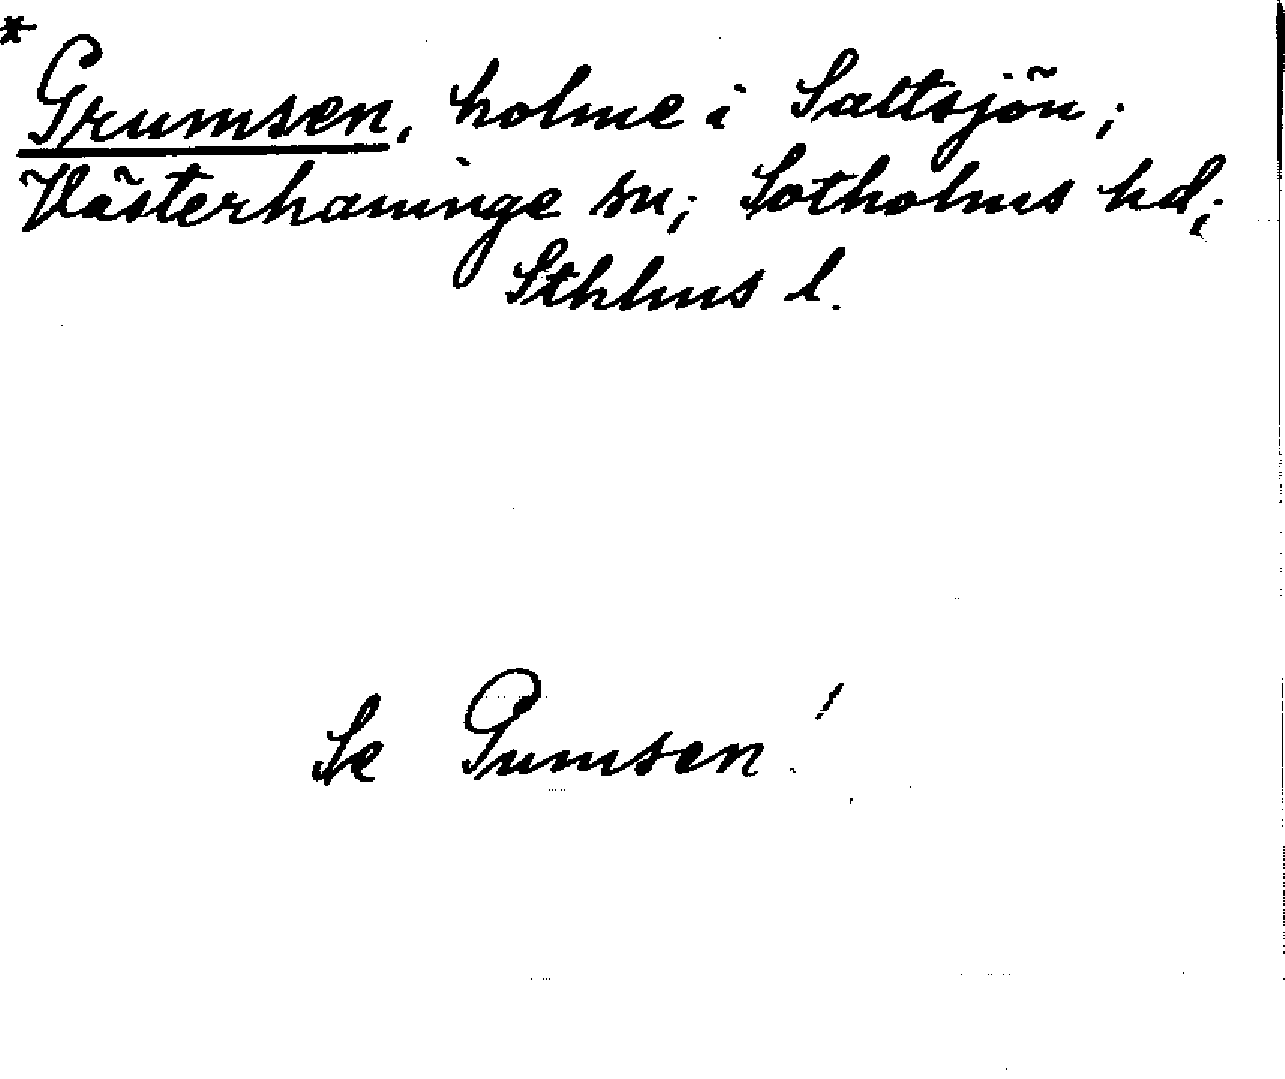 *
Grumsen, holme i Saltsjön;
Västerhaninge sn; Sotholms hd;
Sthlms l.
Se Gumsen!